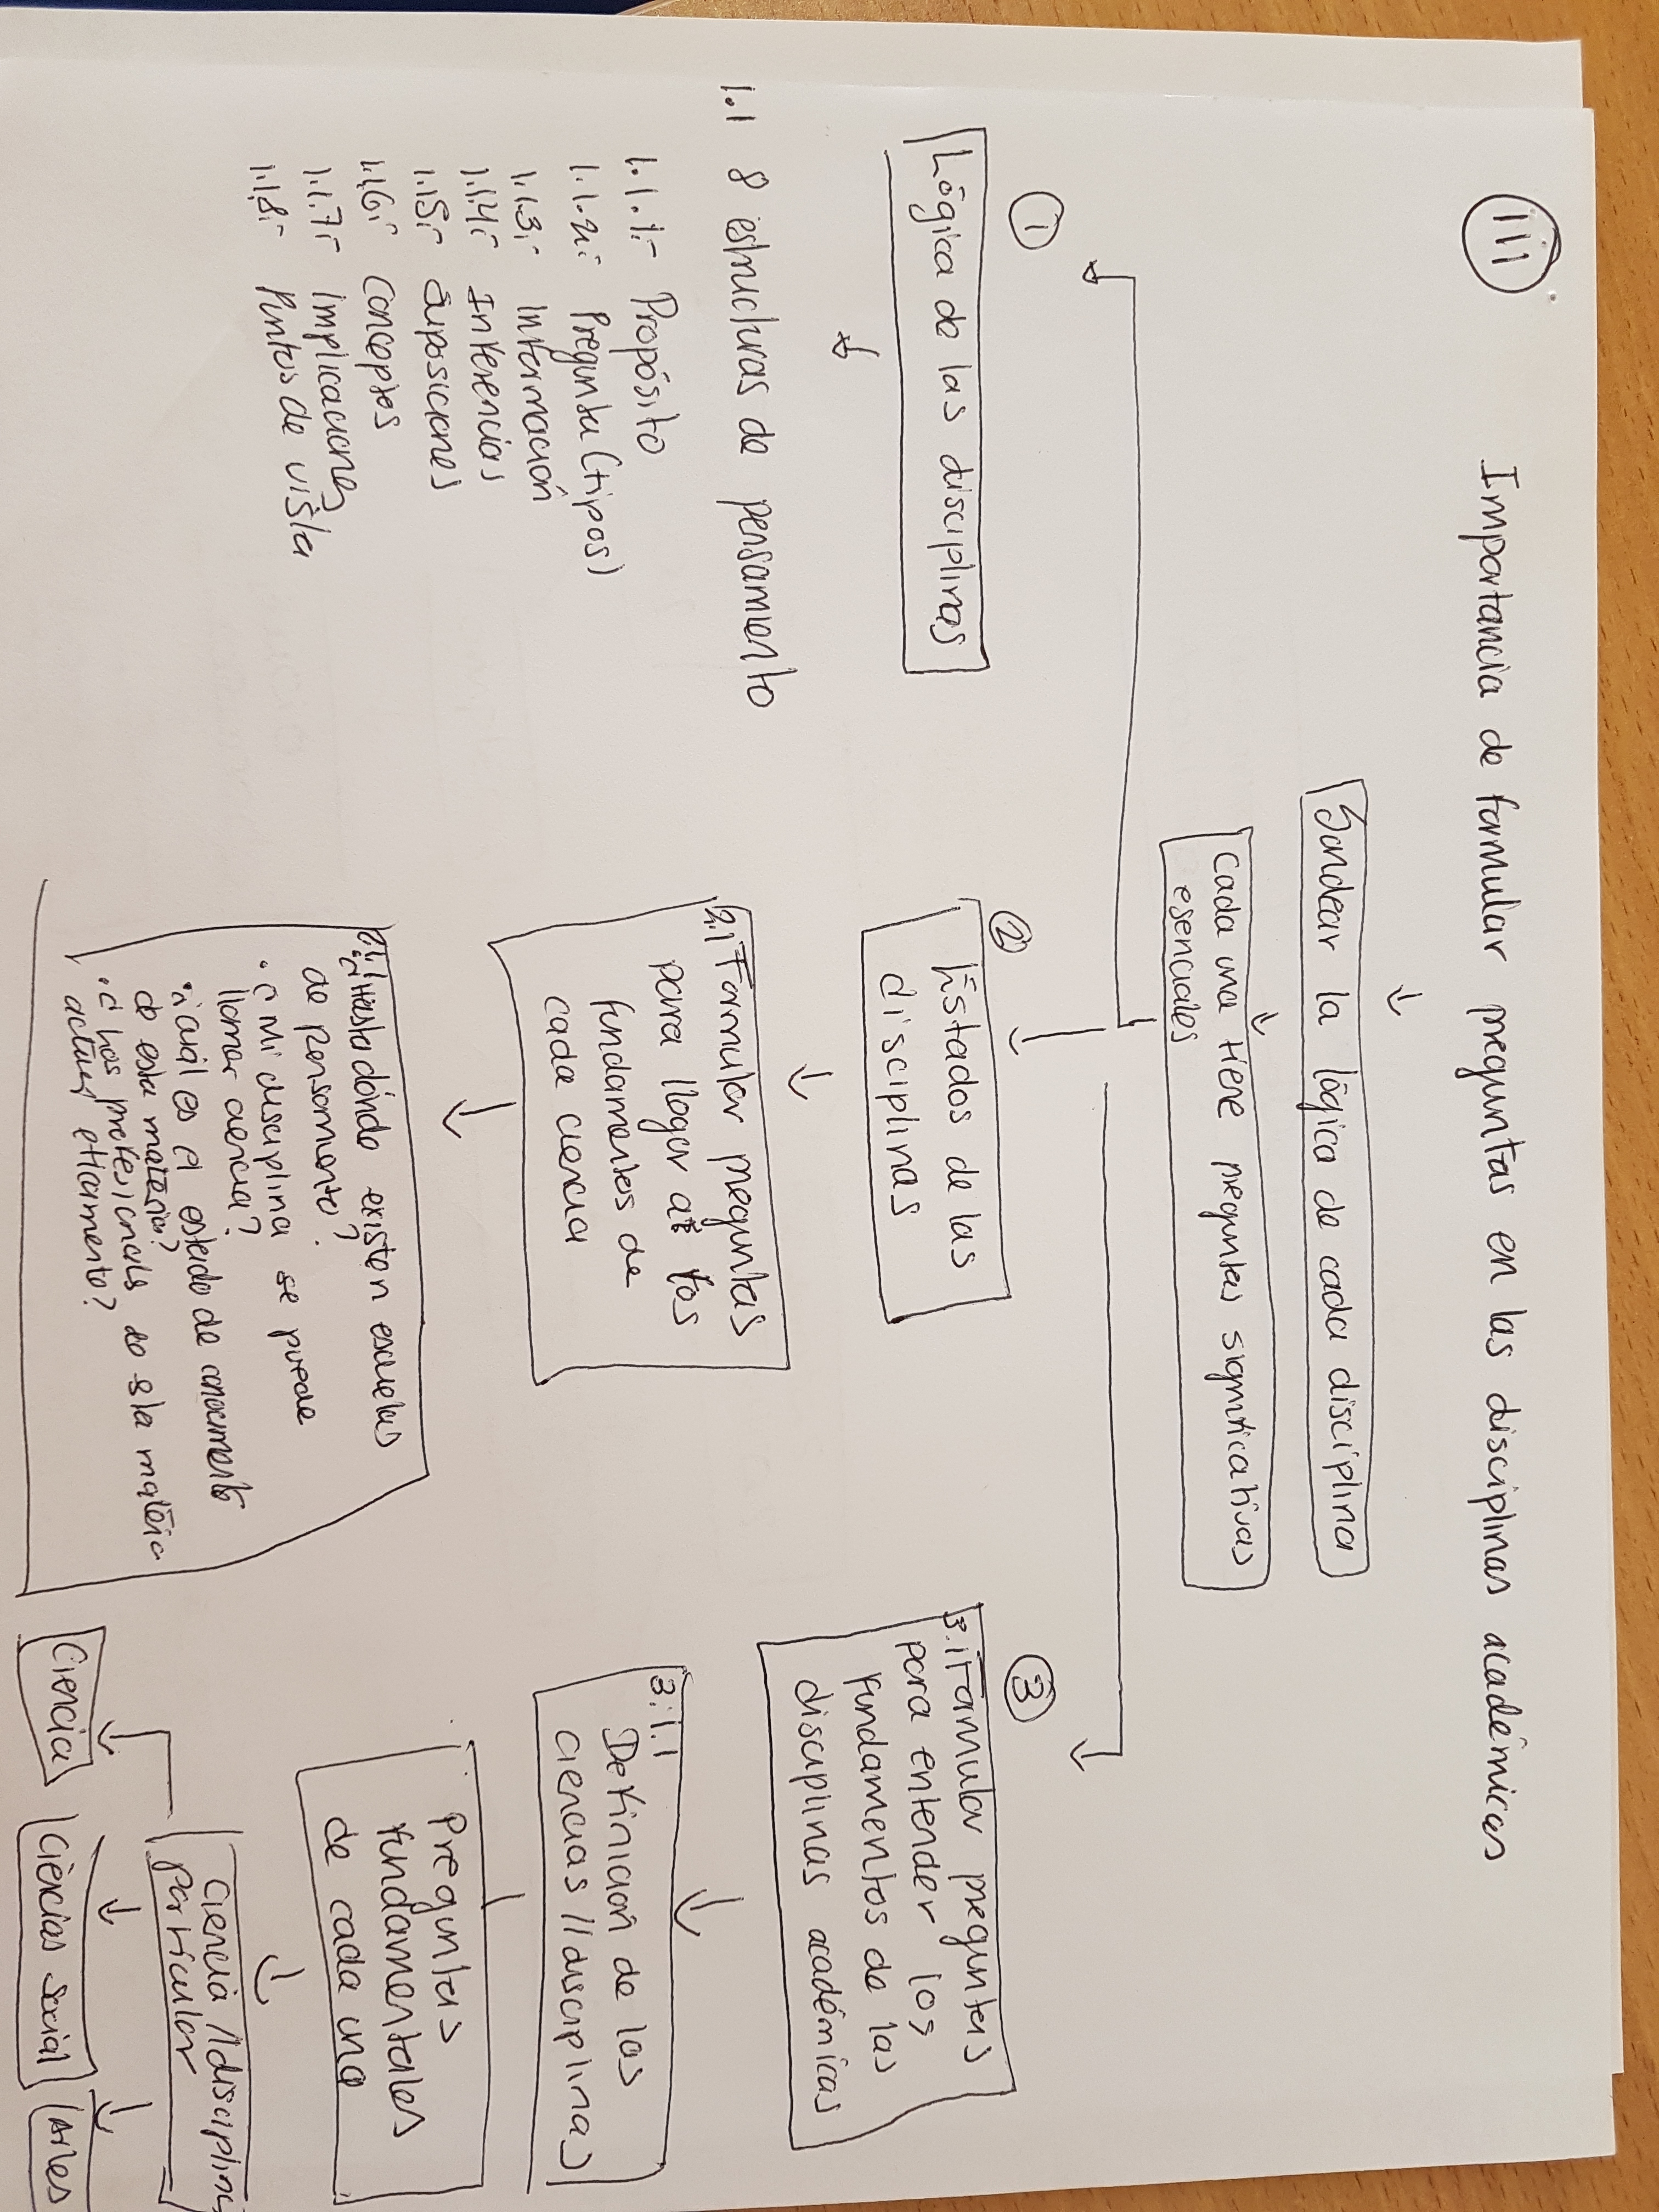 III
Importancia de formular preguntas en las disciplinas académicas
Sondear la lógica de cada disciplina
Cada una tiene preguntas significativas
esenciales
1
Lógica de las disciplinas
1.1 8 estructuras de pensamiento
1.1.1.- Propósito
1.1.2.- Pregunta (tipos)
1.1.3.- Información
1.1.4.- Inferencias
1.1.5.- Suposiciones
1.1.6.- Conceptos
1.1.7.- Implicaciones
1.1.8.- Puntos de vista
2
Estados de las
disciplinas
2.1 Formular preguntas
para llegar a los
fundamentos de
cada ciencia
¿Hasta dónde existen escuelas
de pensamiento?
• ¿Mi disciplina se puede
llamar ciencia?
• ¿Cuál es el estado de conocimiento
de esta materia?
• ¿los profesionales de la materia
actúan éticamente?
3
3.1 Formular preguntas
para entender los
fundamentos de las
disciplinas académicas
3.1.1 Definición de las
ciencias // disciplinas
Preguntas
fundamentales
de cada una
Ciencia // disciplina
particular
Ciencia
Ciencias social
Artes